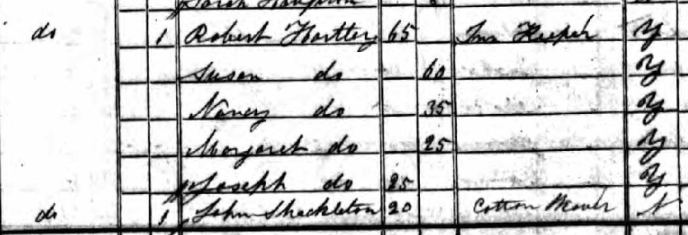 do 1 Robert Hartley 65 Inn Keeper Y
Susan do 60 Y
Nancy do 35 Y
Margaret do 25 Y
Joseph do 25 Y
do 1 John Shackleton 20 Cotton Weaver N